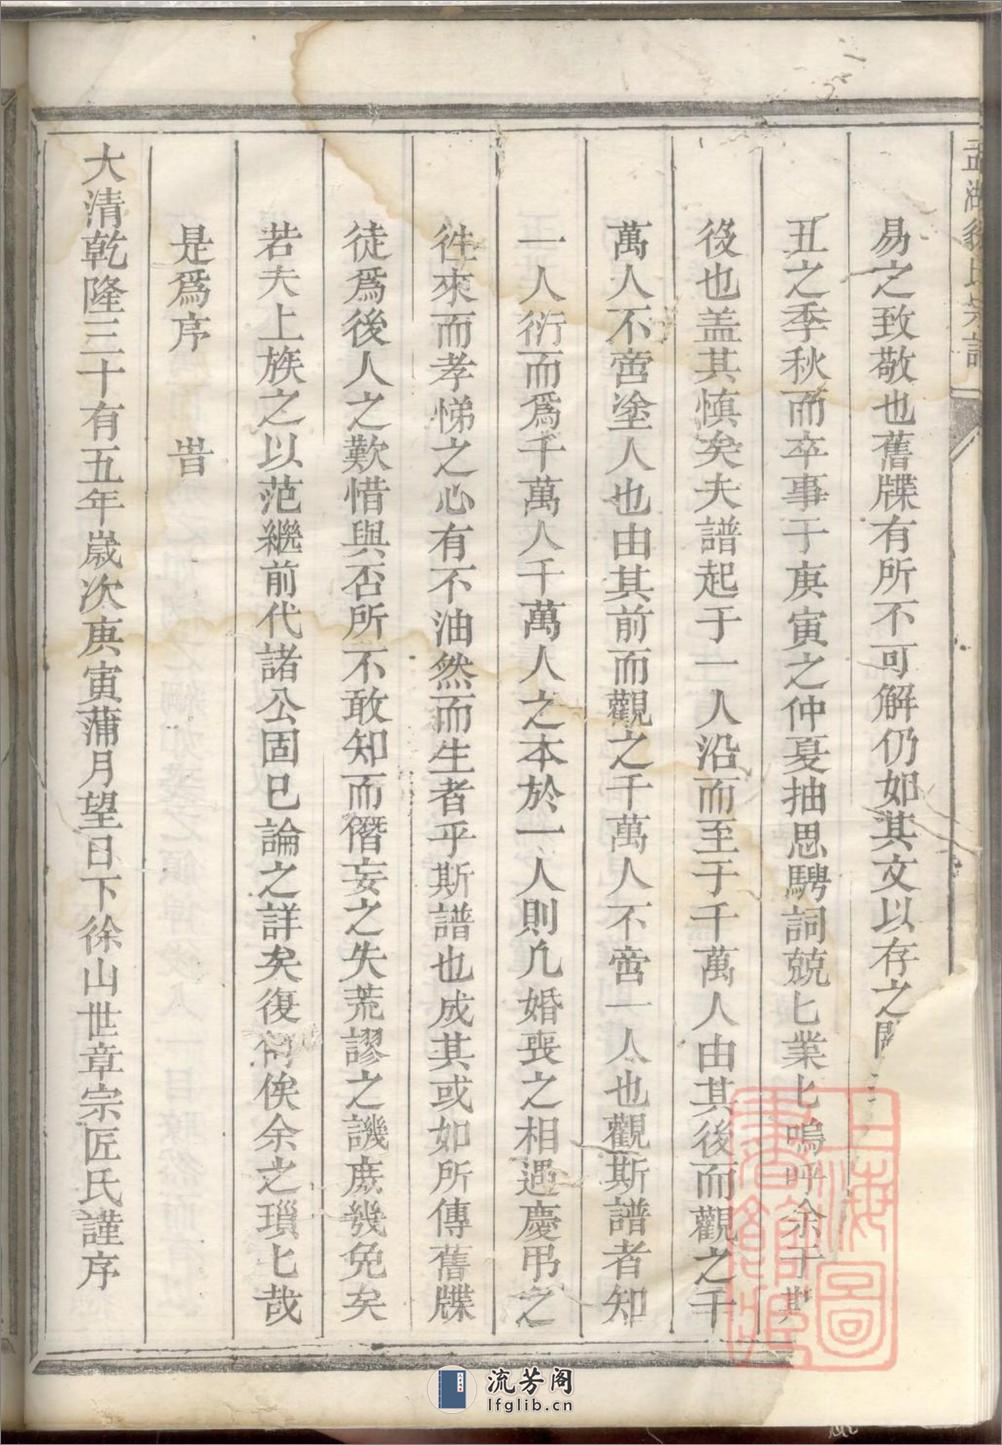 易之致敬也舊牒有所不可解仍如其文以存之
丑之季秋而卒事于庚寅之仲夏抽思騁詞兢匕業匕嗚呼余于
後也盖其慎矣夫譜起于一人沿而至于千萬人由其後而觀之千
萬人不啻塗人也由其前而觀之千萬人不啻一人也觀斯譜者知
一人衍而爲千萬人千萬人之本於一人則凡婚喪之相遇慶吊之
徃來而孝悌之心有不油然而生者乎斯譜也成其或如所傳舊牒
徒爲後人之歎惜與否所不敢知而僭妄之失荒謬之譏庶幾免矣
若夫上族之以范繼前代諸公固已論之詳矣復何俟余之瑣匕哉
是爲序 旹
大清乾隆三十有五年歲次庚寅蒲月望日下徐山世章宗匠氏謹序
上海圖書館藏
流芳阁
lfglib.cn